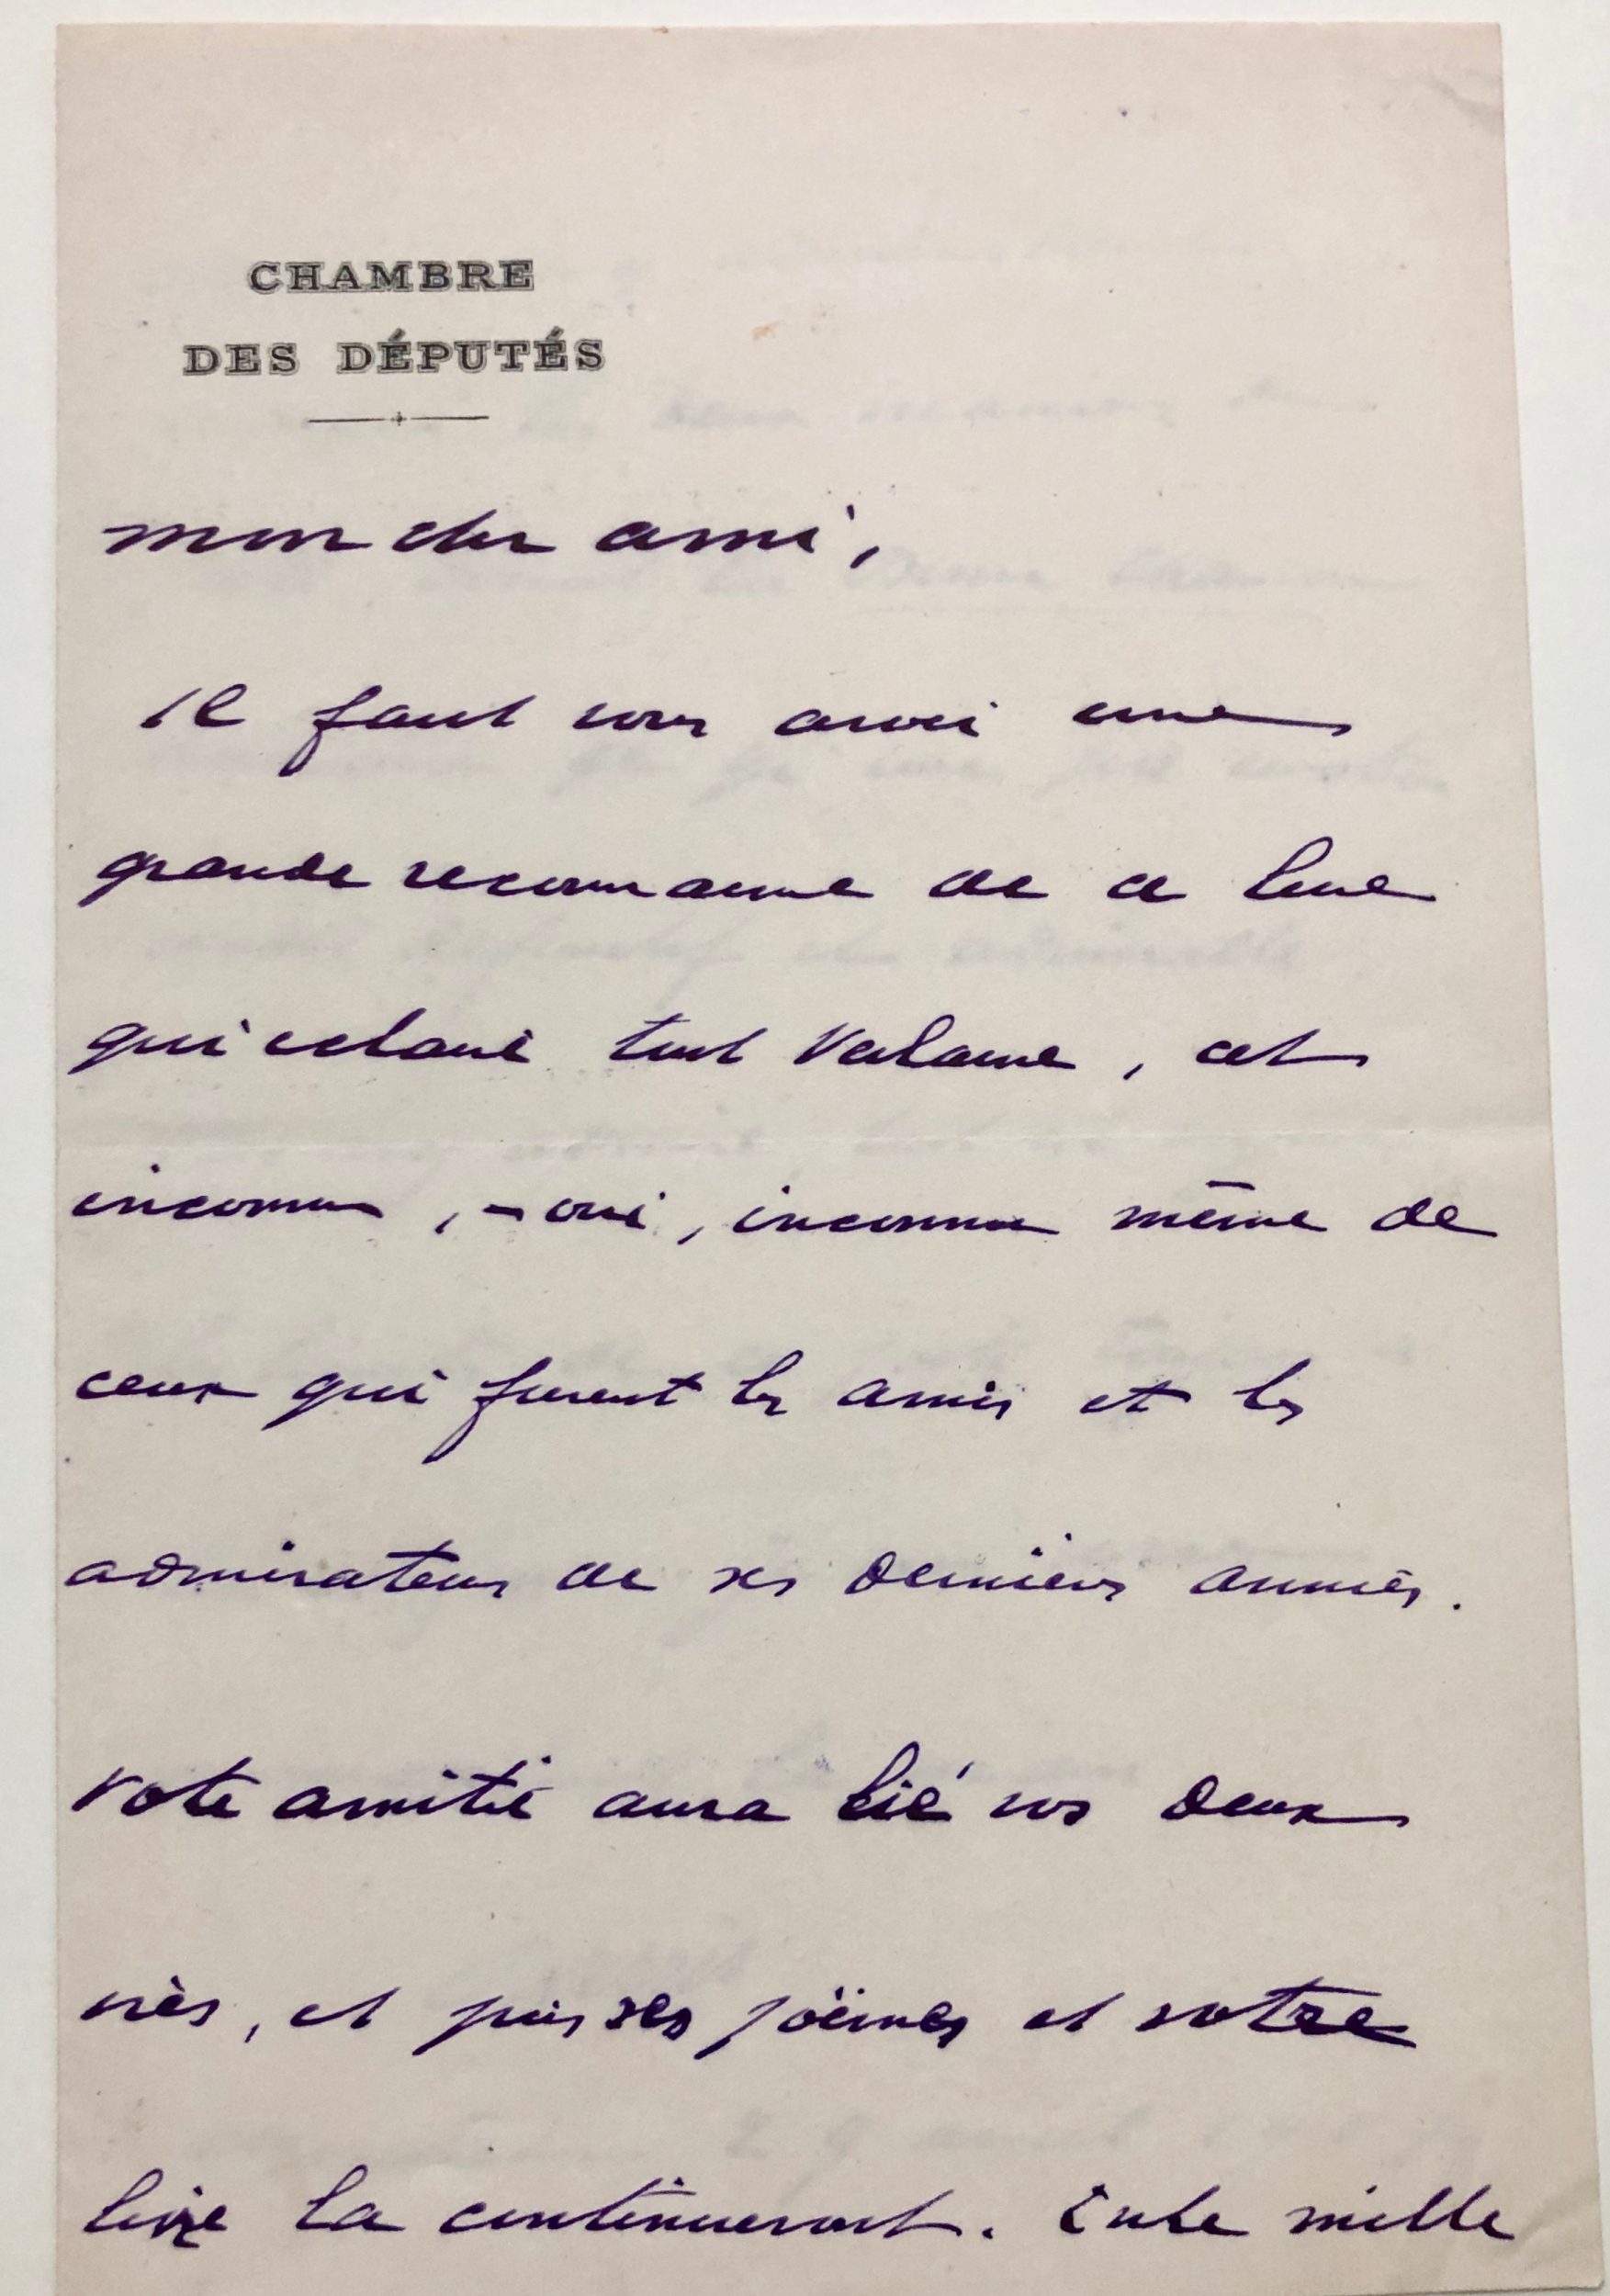 CHAMBRE
DES DÉPUTÉS
mon cher ami,
il faut vous avoir une
grande reconnaissance de ce livre
qui éclaire tout Verlaine, cet
inconnu, - oui, inconnu même de
ceux qui furent les amis et les
admirateurs de ses dernières années.
Votre amitié aura lié vos deux
vies, et puis ses poëmes et votre
livre la continueront. Entre mille